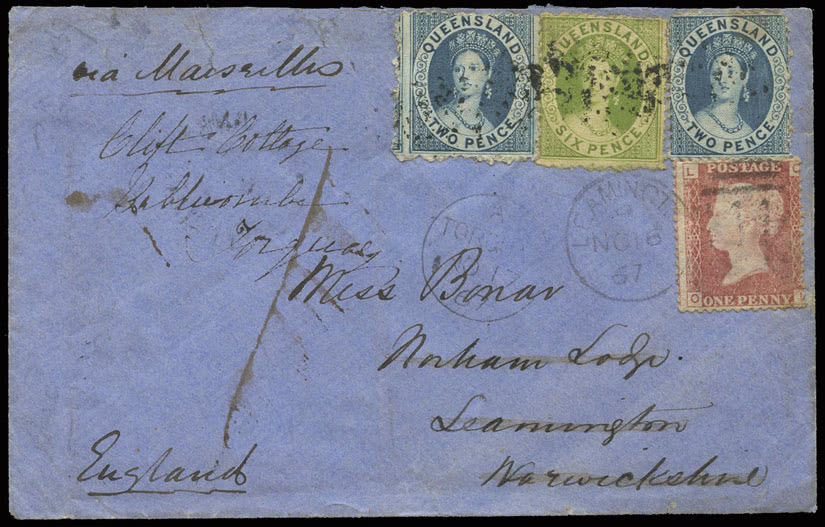 QUEENSLAND
TWO PENCE
QUEENSLAND
SIX PENCE
QUEENSLAND
TWO PENCE
via Marseilles
Clift Cottage
Torquay
LEAMINGTON
NO 16
67
POSTAGE
L O
O L
ONE PENNY
TOR
Miss Bonar
Norham Lodge.
Leamington
Warwickshire
England